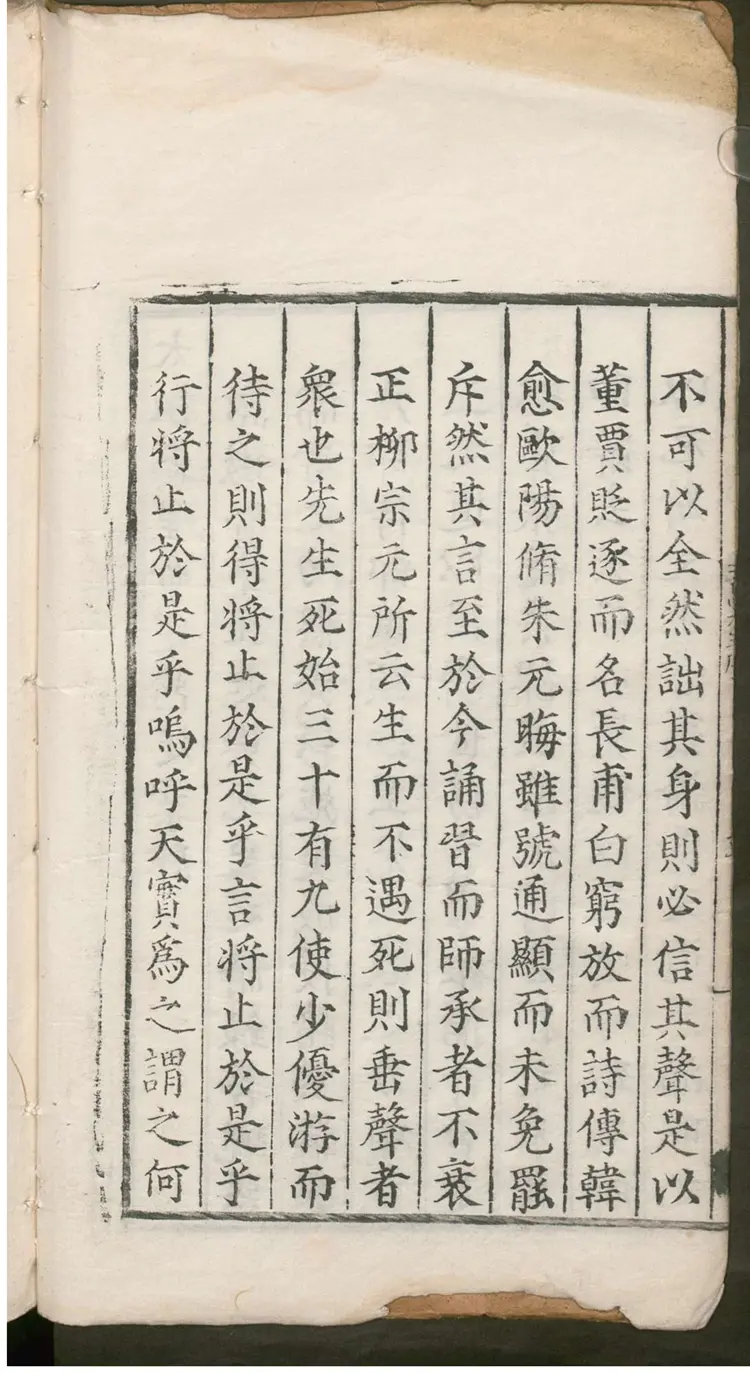 不可以全然詘其身則必信其聲是以
董賈貶逐而名長甫白窮放而詩傳韓
愈歐陽脩朱元晦雖號通顯而未免罷
斥然其言至於今誦習而師承者不衰
正柳宗元所云生而不遇死則垂聲者
衆也先生死始三十有九使少優游而
待之則得將止於是乎言將止於是乎
行將止於是乎嗚呼天實爲之謂之何